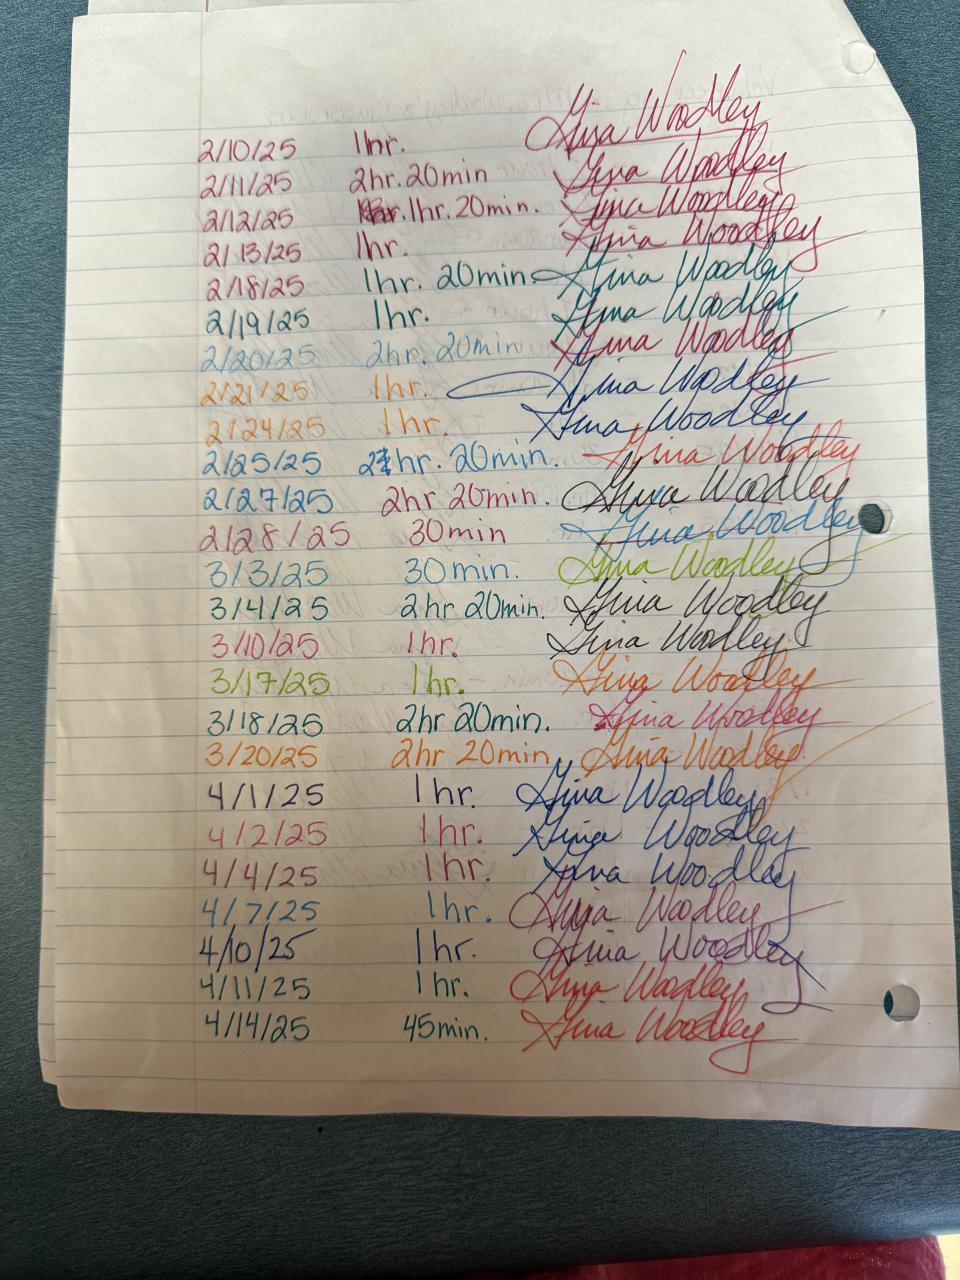 2/10/25 1hr. Gina Woodley
2/11/25 2hr. 20min Gina Woodley
2/12/25 1hr. 20min. Gina Woodley
2/13/25 1hr. Gina Woodley
2/18/25 1hr. 20min Gina Woodley
2/19/25 1hr. Gina Woodley
2/20/25 2hr. 20min Gina Woodley
2/21/25 1hr. Gina Woodley
2/24/25 1hr. Gina Woodley
2/25/25 2hr. 20min. Gina Woodley
2/27/25 2hr 20min. Gina Woodley
2/28/25 30min Gina Woodley
3/3/25 30min. Gina Woodley
3/4/25 2hr 20min. Gina Woodley
3/10/25 1hr. Gina Woodley
3/17/25 1hr. Gina Woodley
3/18/25 2hr 20min. Gina Woodley
3/20/25 2hr 20min Gina Woodley
4/1/25 1hr. Gina Woodley
4/2/25 1hr. Gina Woodley
4/4/25 1hr. Gina Woodley
4/7/25 1hr. Gina Woodley
4/10/25 1hr. Gina Woodley
4/11/25 1hr. Gina Woodley
4/14/25 45min. Gina Woodley